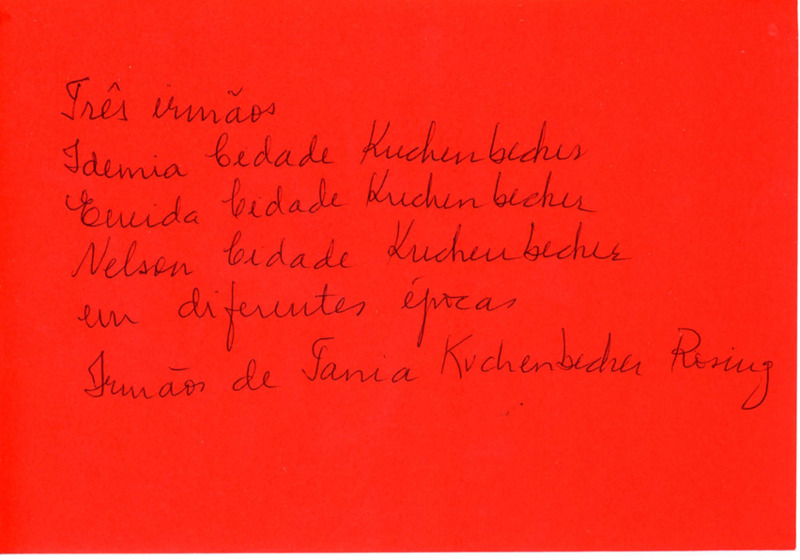 Três irmãos
Idemia Cidade Kuchenbecker
Eneida Cidade Kuchenbecker
Nelson Cidade Kuchenbecker
em diferentes épocas
Irmãos de Tania Kuchenbecker Rosing